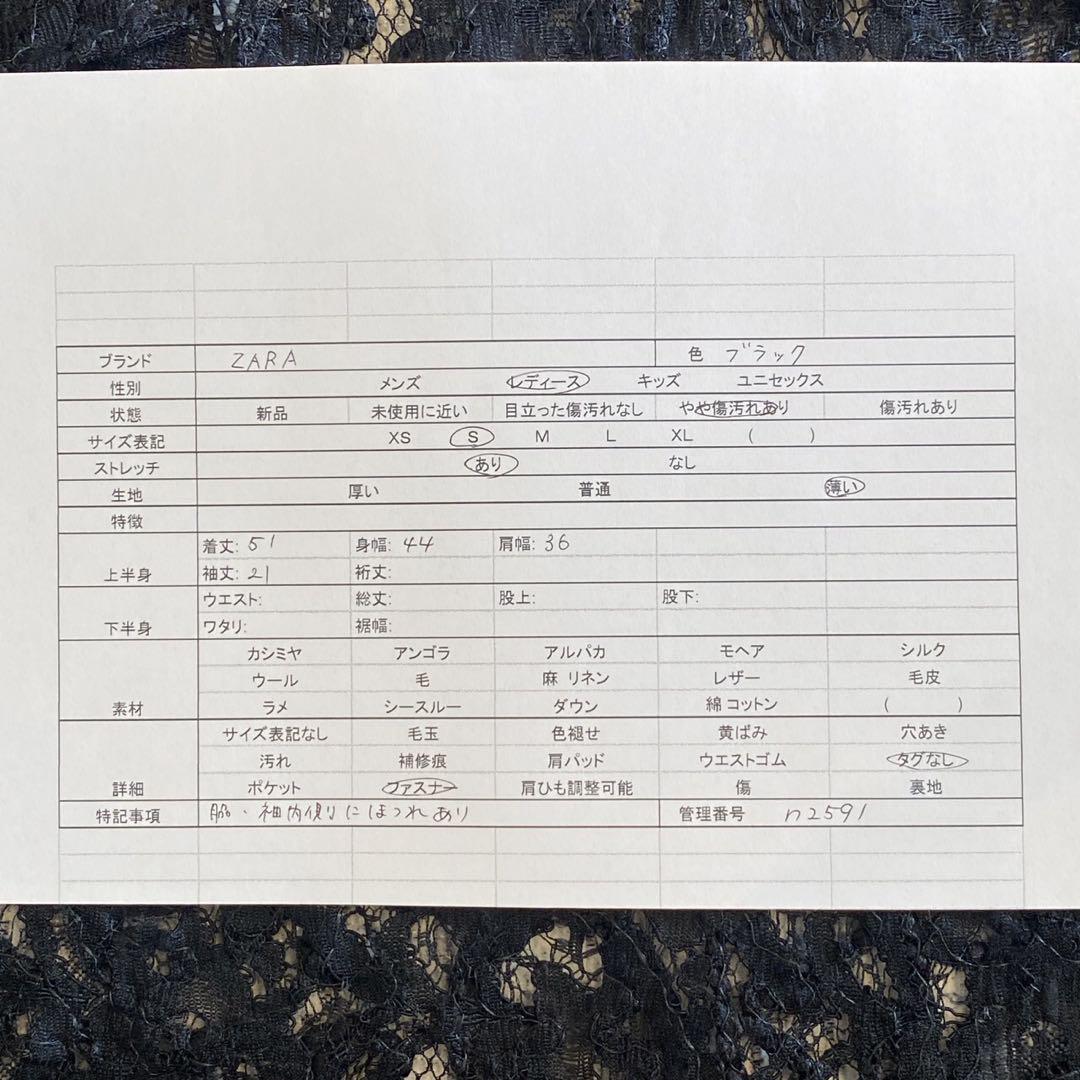 ブランド ZARA 色 ブラック
性別 メンズ レディース キッズ ユニセックス
状態 新品 未使用に近い 目立った傷汚れなし やや傷汚れあり 傷汚れあり
サイズ表記 XS S M L XL ( )
ストレッチ あり なし
生地 厚い 普通 薄い
特徴
着丈: 51 身幅: 44 肩幅: 36
上半身 袖丈: 21 裄丈:
ウエスト: 総丈: 股上: 股下:
下半身 ワタリ: 裾幅:
カシミヤ アンゴラ アルパカ モヘア シルク
ウール 毛 麻 リネン レザー 毛皮
素材 ラメ シースルー ダウン 綿 コットン ( )
サイズ表記なし 毛玉 色褪せ 黄ばみ 穴あき
汚れ 補修痕 肩パッド ウエストゴム タグなし
詳細 ポケット ファスナー 肩ひも調整可能 傷 裏地
特記事項 脇・袖内側りにほつれあり 管理番号 n2591